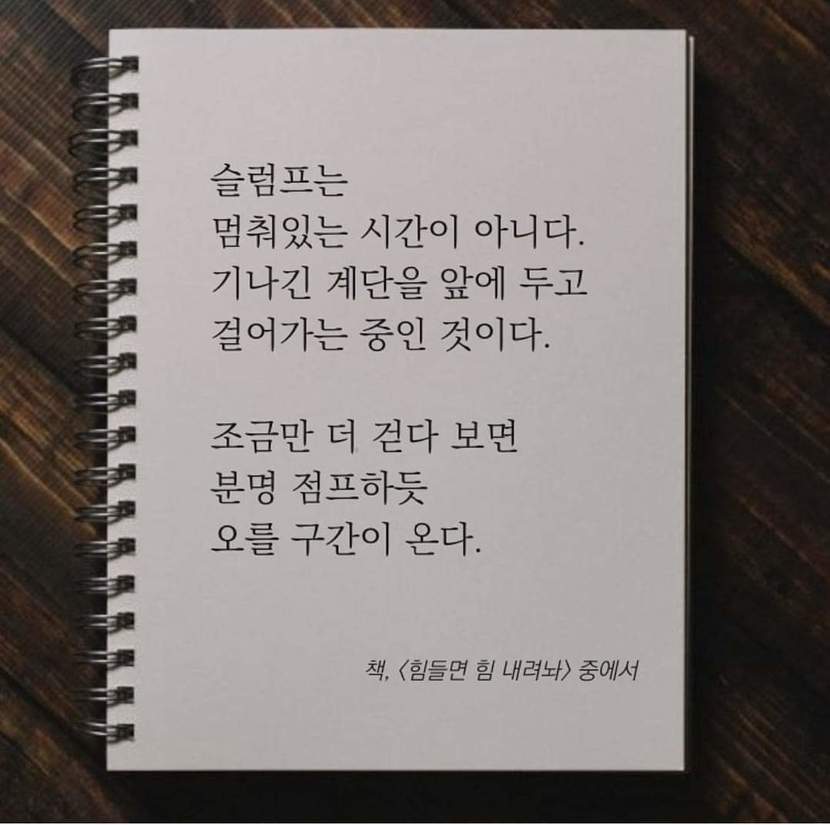 슬럼프는
멈춰있는 시간이 아니다.
기나긴 계단을 앞에 두고
걸어가는 중인 것이다.
조금만 더 걷다 보면
분명 점프하듯
오를 구간이 온다.
책, <힘들면 힘 내려놔> 중에서